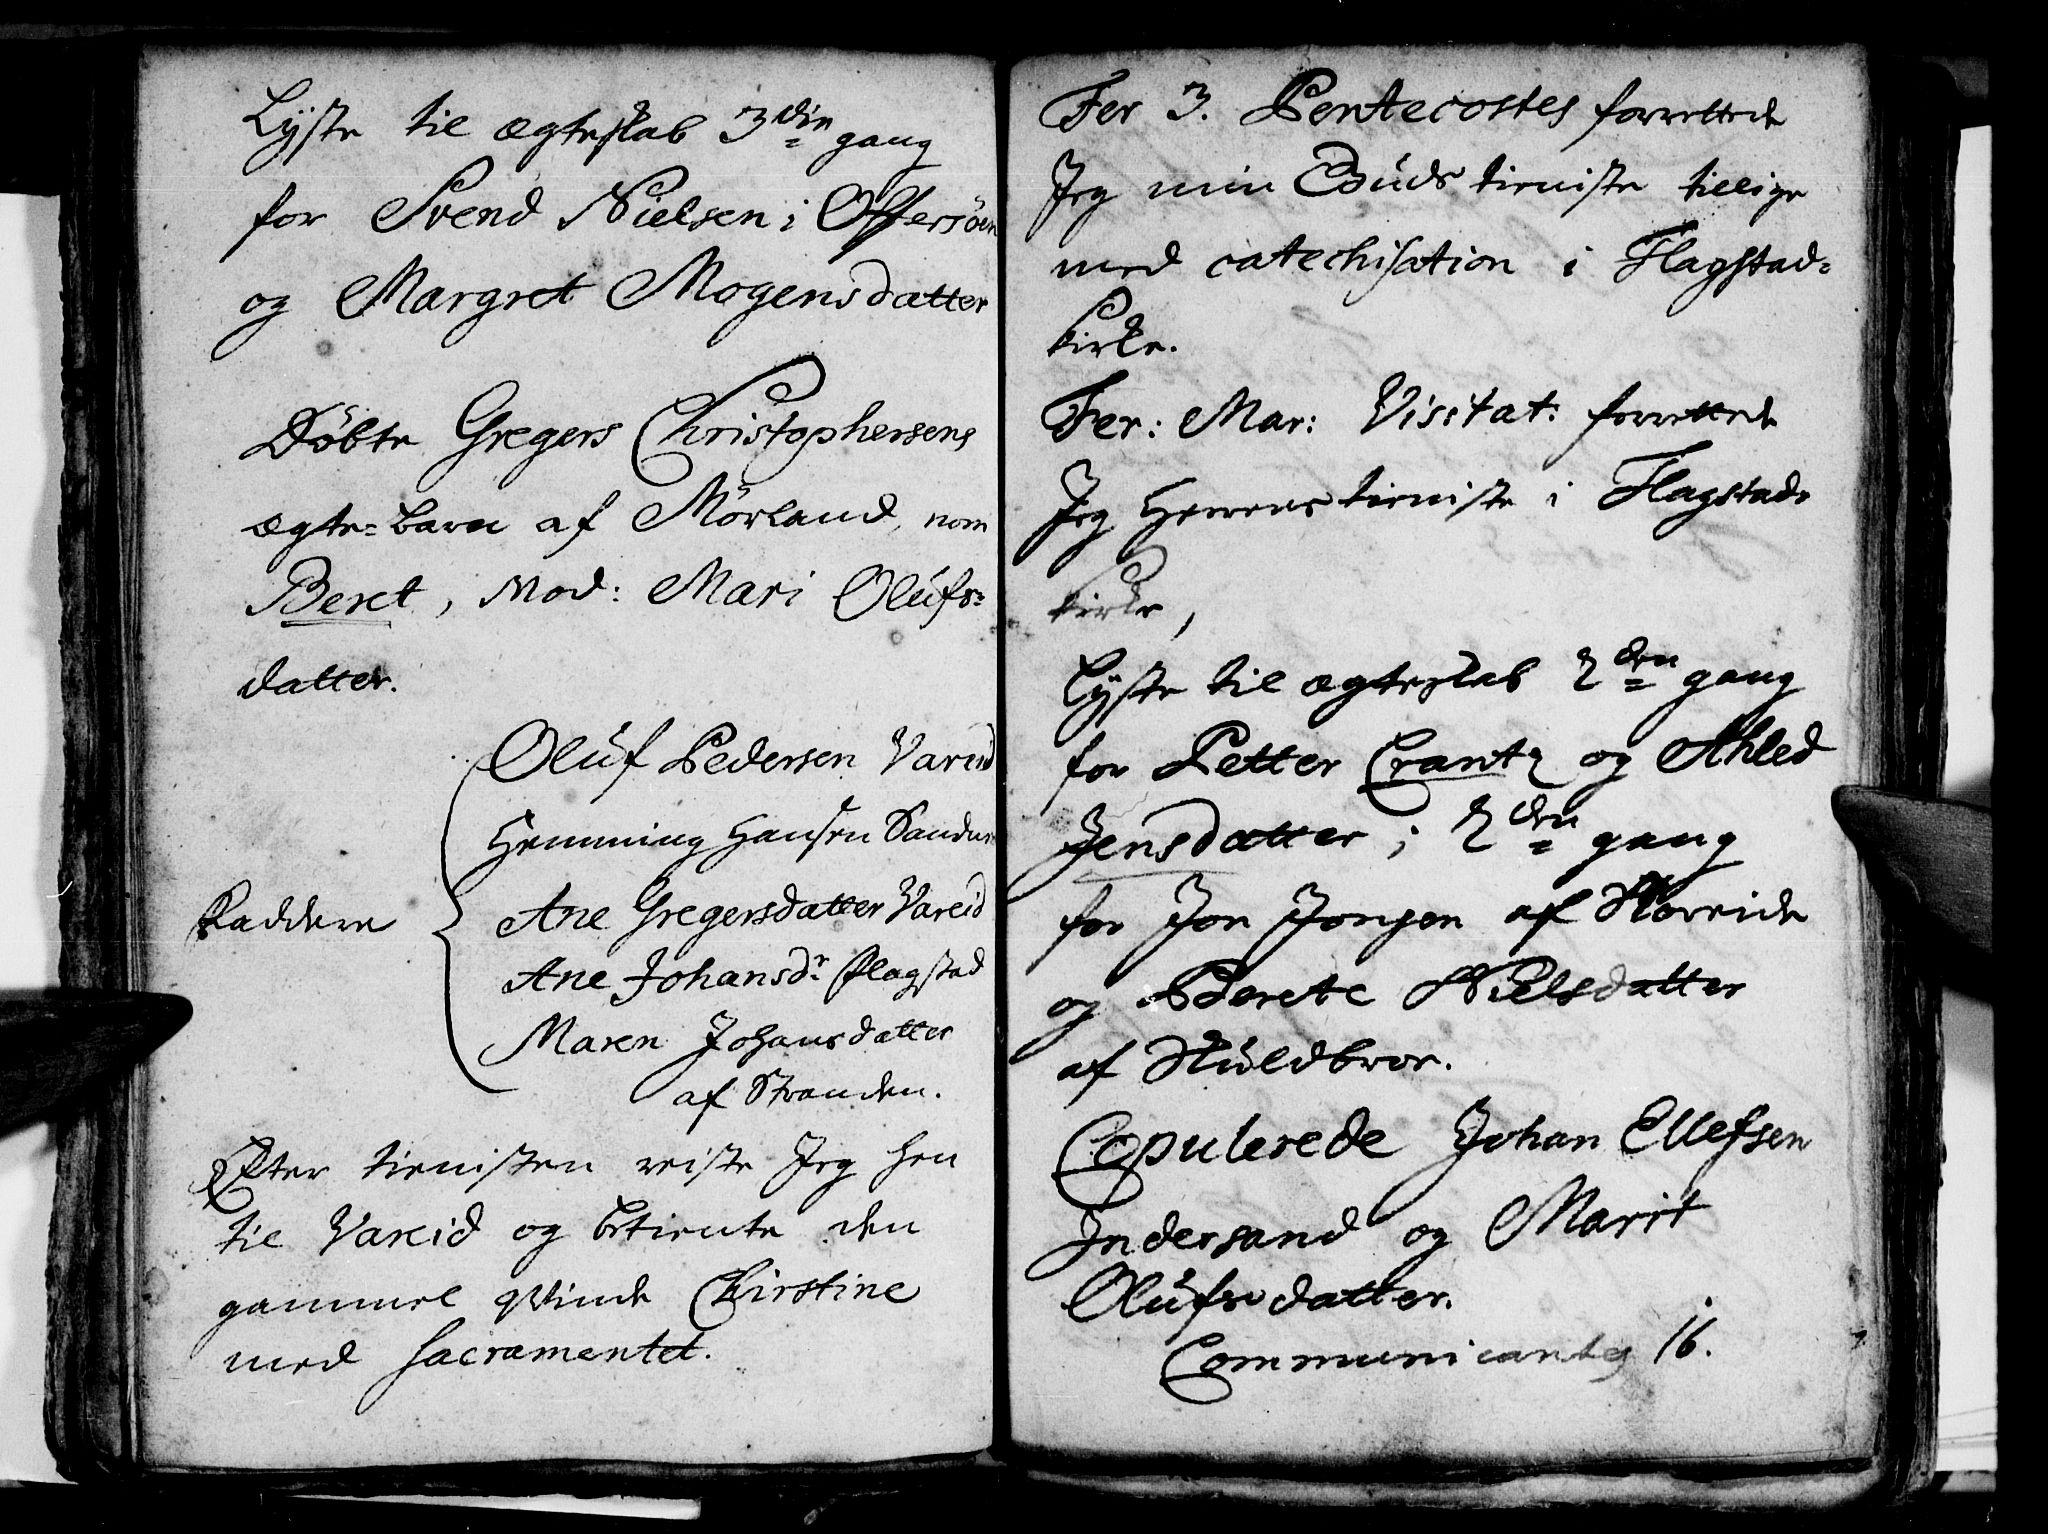 Lyste til ægteskab 3die gang
for Svend Nielsen i Offersöen
og Margret Mogensdatter
Döbte Gregers Christophersens
ægte=barn af Mörland, nom
Beret, Mod: Mari Olufs=
datter.
Oluf Pedersen Vareid
Hemming Hansen Sandnes
Faddere Ane Gregersdatter Vareid
Ane Johansdr Flagstad
Maren Johansdatter
af Stranden.
Efter tienisten reiste Jeg hen
til Vareid og betiente den
gammel qvinde Chirstine
med Sacramentet.
Fer 3. Pentecostes forrettede
Jeg min Guds tieniste tillige
med catechisation i Flagstad=
kirke.
Fer: Mar: Visitat: forrettede
Jeg Herrens tieniste i Flagstads
kirke,
Lyste til ægteskab 2den gang
for Petter Crantz og Ahled
Jensdatter; 2den gang
for Jon Jonsen af
og Berete Nielsdatter
af
Copulerede Johan Ellefsen
Indersand og Marit
Olufsdatter.
Communicantes 16.